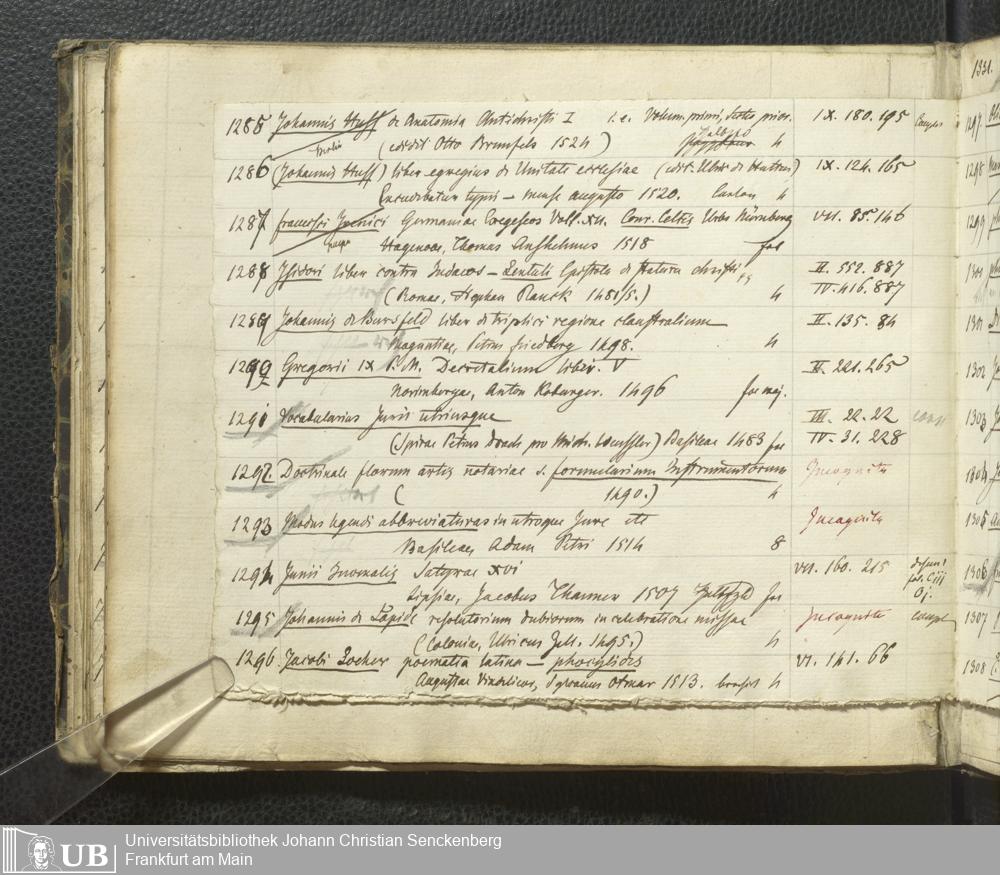 1285 Johannis Huss de Anatomia Antichristi I i.e. Volum. primi, Pars prior. IX. 180. 195
(edidit Otto Brunfels 1524) 4
1286 (Johannis Huss) liber egregius de Unitate ecclesiae IX. 124. 165
Excudebatur typis — mense augusto 1520. 4
1287 francisci Irenici Germaniae Exegeseos Voll. XII. Conr. Celtis Urbs Nürnberg VII. 85. 146
Hagenoae, Thomas Anshelmus 1518 fol
1288 Isidori liber contra Judaeos — Lentuli Epistola de statura christi II. 552. 887
(Romae, Stephan Planck 1485.) 4 IV. 416. 887
1289 Johannis de Bursfeld liber de triplici regione claustralium II. 135. 84
Maguntiae, Petrus friedberg 1498. 4
1290 Gregorii IX P. M. Decretalium libri V II. 221. 265
Norimbergae, Anton Koburger. 1496 fo maj.
1291 Vocabularius Juris utriusque III. 22. 22
(Spirae Petrus Drach pro Mich. Wenssler) Basileae 1483 fol IV. 31. 228
1292. Doctrinale florum artis notariae s. formularium Instrumentorum Incognita
( 1490.) 4
1293 Modus legendi abbreviaturas in utroque Jure etc Incognita
Basileae, Adam Petri 1514 8
1294 Junii Juvenalis Satyrae XVI VII. 160. 215
Lipsiae, Jacobus Thanner 1507 fol
1295 Johannis de Lapide resolutorium dubiorum in celebratione missae Incognita
(Coloniae, Ulricus Zell. 1495.) 4
1296. Jacobi Locher poematia latina — phocylides VI. 141. 66
Augustae Vindelicor, Sylvanus Otmar 1513. 4
1331.
1297
1298
1299
1301
1302
1303
1304
1305
1306
1307
1308
UB
Universitätsbibliothek Johann Christian Senckenberg
Frankfurt am Main